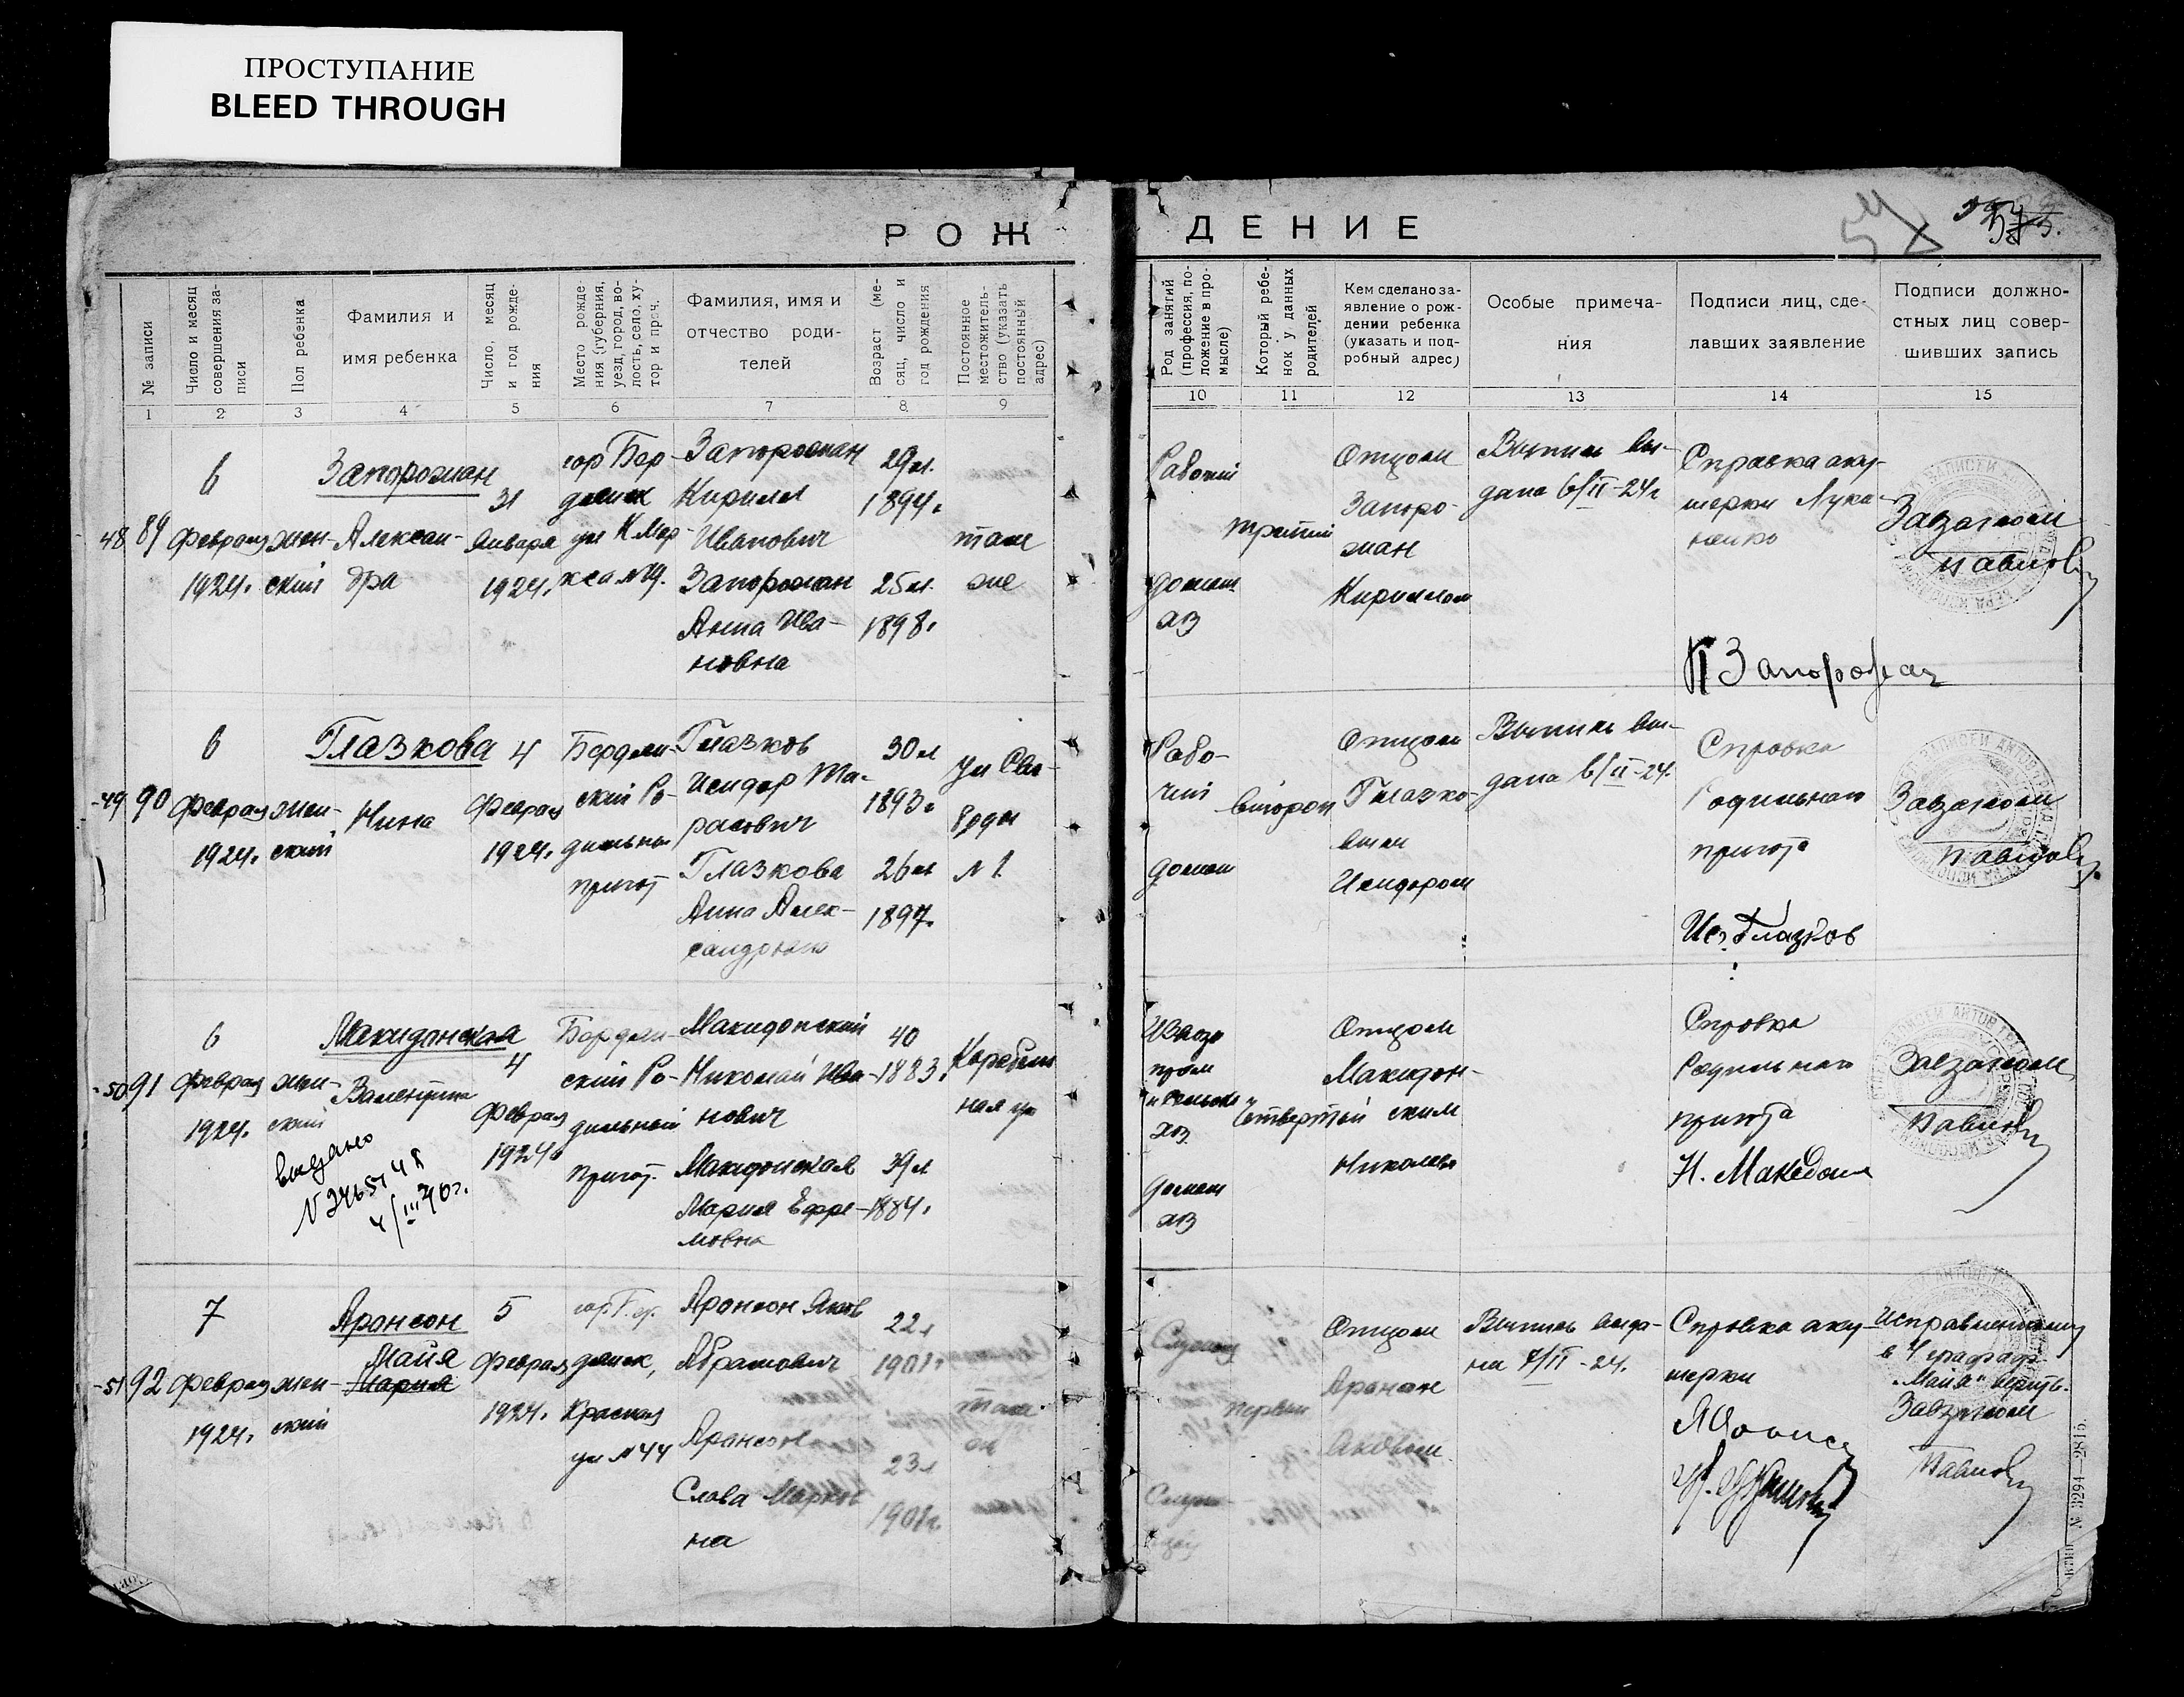 ПРОСТУПАНИЕ
BLEED THROUGH
РОЖДЕНИЕ
№ записи
Число и месяц совершения записи
Пол ребенка
Фамилия и
имя ребенка
Число, месяц и год рождения
Место рождения (губерния, уезд, город, волость, село, хутор и проч.
Фамилия, имя и
отчество роди-
телей
Возраст (месяц, число и год рождения
Постоянное местожительство (указать постоянный адрес)
Род занятий (профессия, положение в промысле)
Который ребенок у данных родителей
Кем сделано за-
явление о рож-
дении ребенка
(указать и под-
робный адрес)
Особые примеча-
ния
Подписи лиц, сде-
лавших заявление
Подписи должно-
стных лиц совер-
шивших запись
1 2 3 4 5 6 7 8 9 10 11 12 13 14 15
48 89
6
февраля
1924.
жен-
ский
Запорожан
Алексан-
дра
31
Января
1924.
гор Бер-
дянск
ул К Мар-
кса №
Запорожан
Кирилл
Иванович
Запорожан
Анна Ива-
новна
29 л.
1894.
25 л.
1898.
там
же
Рабочий
домаш
хоз
третий
Отцом
Запоро-
жан
Кириллом
Выпись вы-
дана 6/II-24г
Справка аку-
шерки Лука-
ненко
К Запорожан
Завзагсом
Павлов
49 90
6
февраля
1924.
жен-
ский
Глазкова
Нина
4
Февраля
1924.
Бердян-
ский Ро-
дильный
приют
Глазков
Исидор Та-
расович
Глазкова
Анна Алек-
сандровна
30 л
1893.
26 л
1897.
№ 1
Рабо-
чий
домаш
второй
Отцом
Глазко-
вым
Исидором
Выпись вы-
дана 6/II-24.
Справка
Родильного
приюта
Ис. Глазков
Завзагсом
Павлов
50 91
6
февраля
1924.
жен-
ский
Македонская
Валентина
4
Февраля
1924.
Бердян-
ский Ро-
дильный
приют.
Македонский
Николай Ива-
нович
Македонская
Мария Ефре-
мовна
40
1883.
39 л
1884.
выдано
4/III 40г.
домаш
хоз
четвертый
Отцом
Македон-
ским
Николаем
Справка
Родильного
приюта
Н. Македонс
Завзагсом
Павлов
51 92
7
февраля
1924.
жен-
ский
Аронсон
Майя
Мария
5
Февраля
1924.
гор. Бер-
дянск,
Красная
ул № 44
Аронсон Яков
Абрамович
Аронсон
Слава Марков
на
22 л
1901г.
23 л
1901г.
первый
Отцом
Аронсон
Яковом
Выпись выда-
на 7/II-24.
Справка аку-
шерки
Исправленному
в 4 графе
"Майя" верить.
Завзагсом
Павлов
№ 3294—2815.